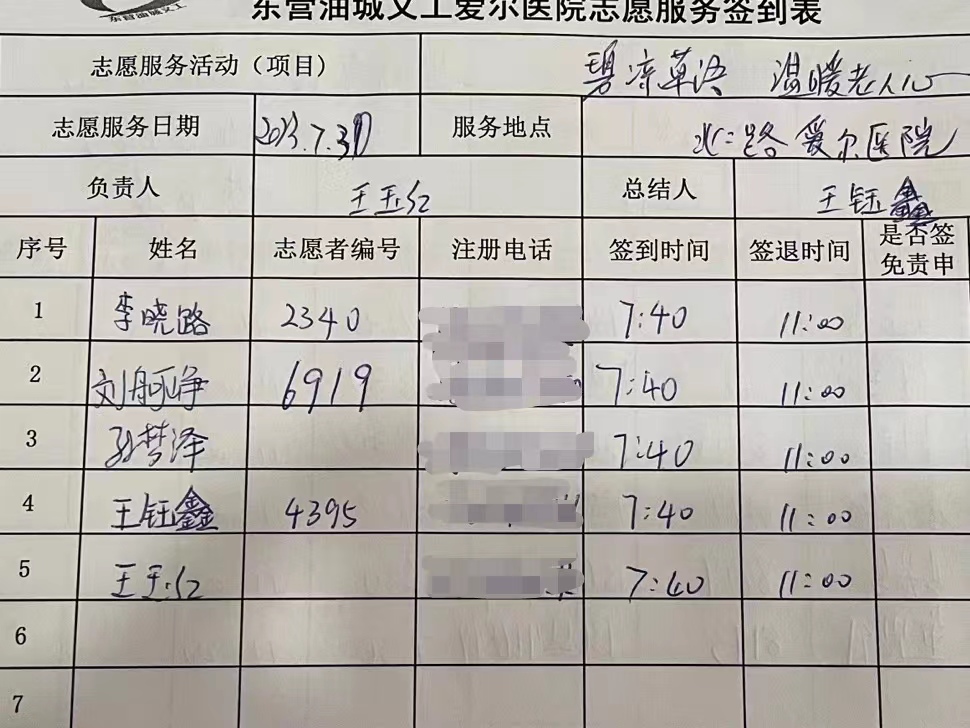 东营油城义工
东营油城义工爱尔医院志愿服务签到表
志愿服务活动（项目） 温暖老人心
志愿服务日期 2023.7.31 服务地点 北二路 爱尔医院
负责人 王玉红 总结人 王钰鑫
序号 姓名 志愿者编号 注册电话 签到时间 签退时间 是否签
免责申
1 李晓路 2340 7:40 11:00
2 刘 6919 7:40 11:00
3 孙梦泽 7:40 11:00
4 王钰鑫 4395 7:40 11:00
5 王玉红 7:40 11:00
6
7